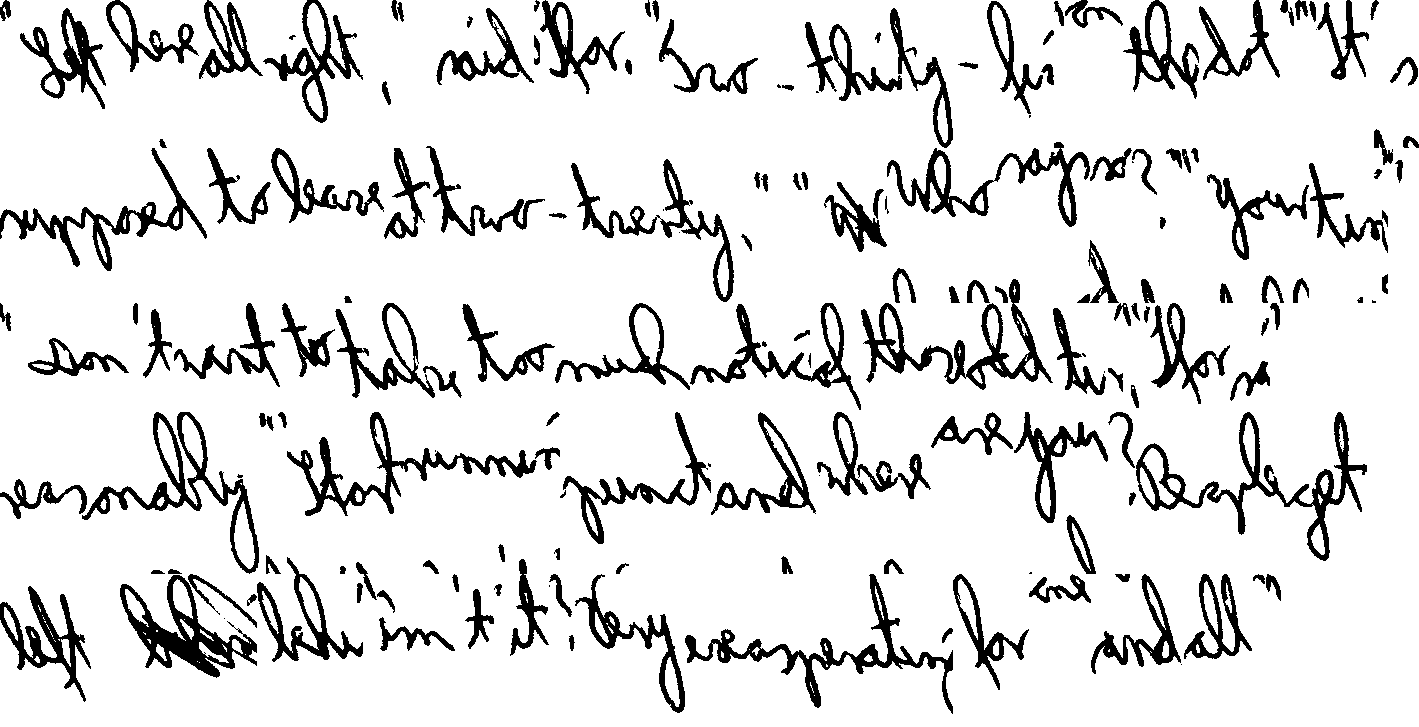 "Left here all right," said Thor. "Two-thirty-five on the dot." "It's
supposed to leave at two-twenty," " Who says so?" "Your tim
"Don't want to take too much notice of those old tim," Thor sa
reasonably. "Start runnin' punct and where are you? People get
left behi isn't it? Very exasperatin' for one and all"